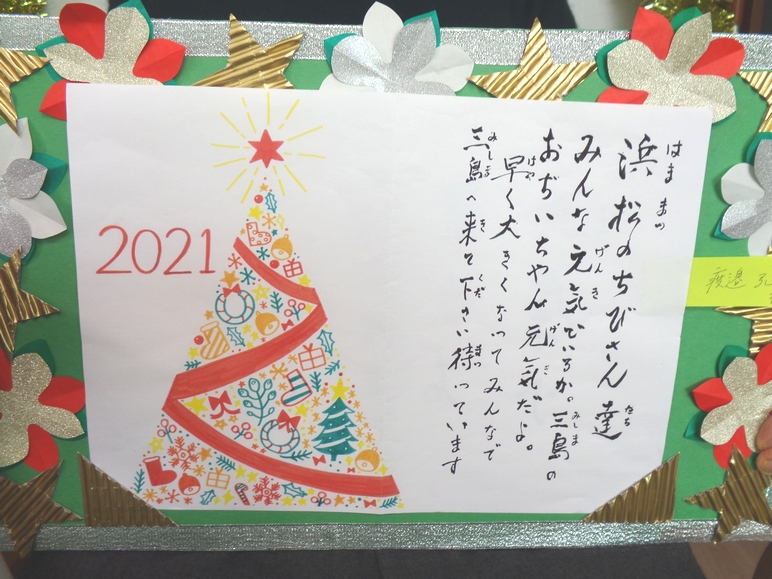 2021
浜松のちびさん達
みんな元気でいるか。三島の
おぢいちゃん元気だよ。
早く大きくなってみんなで
三島へ来て下さい待っています
はままつ
たち
げんき
みしま
げんき
はや
みしま
き
くだ
まっ
渡邉